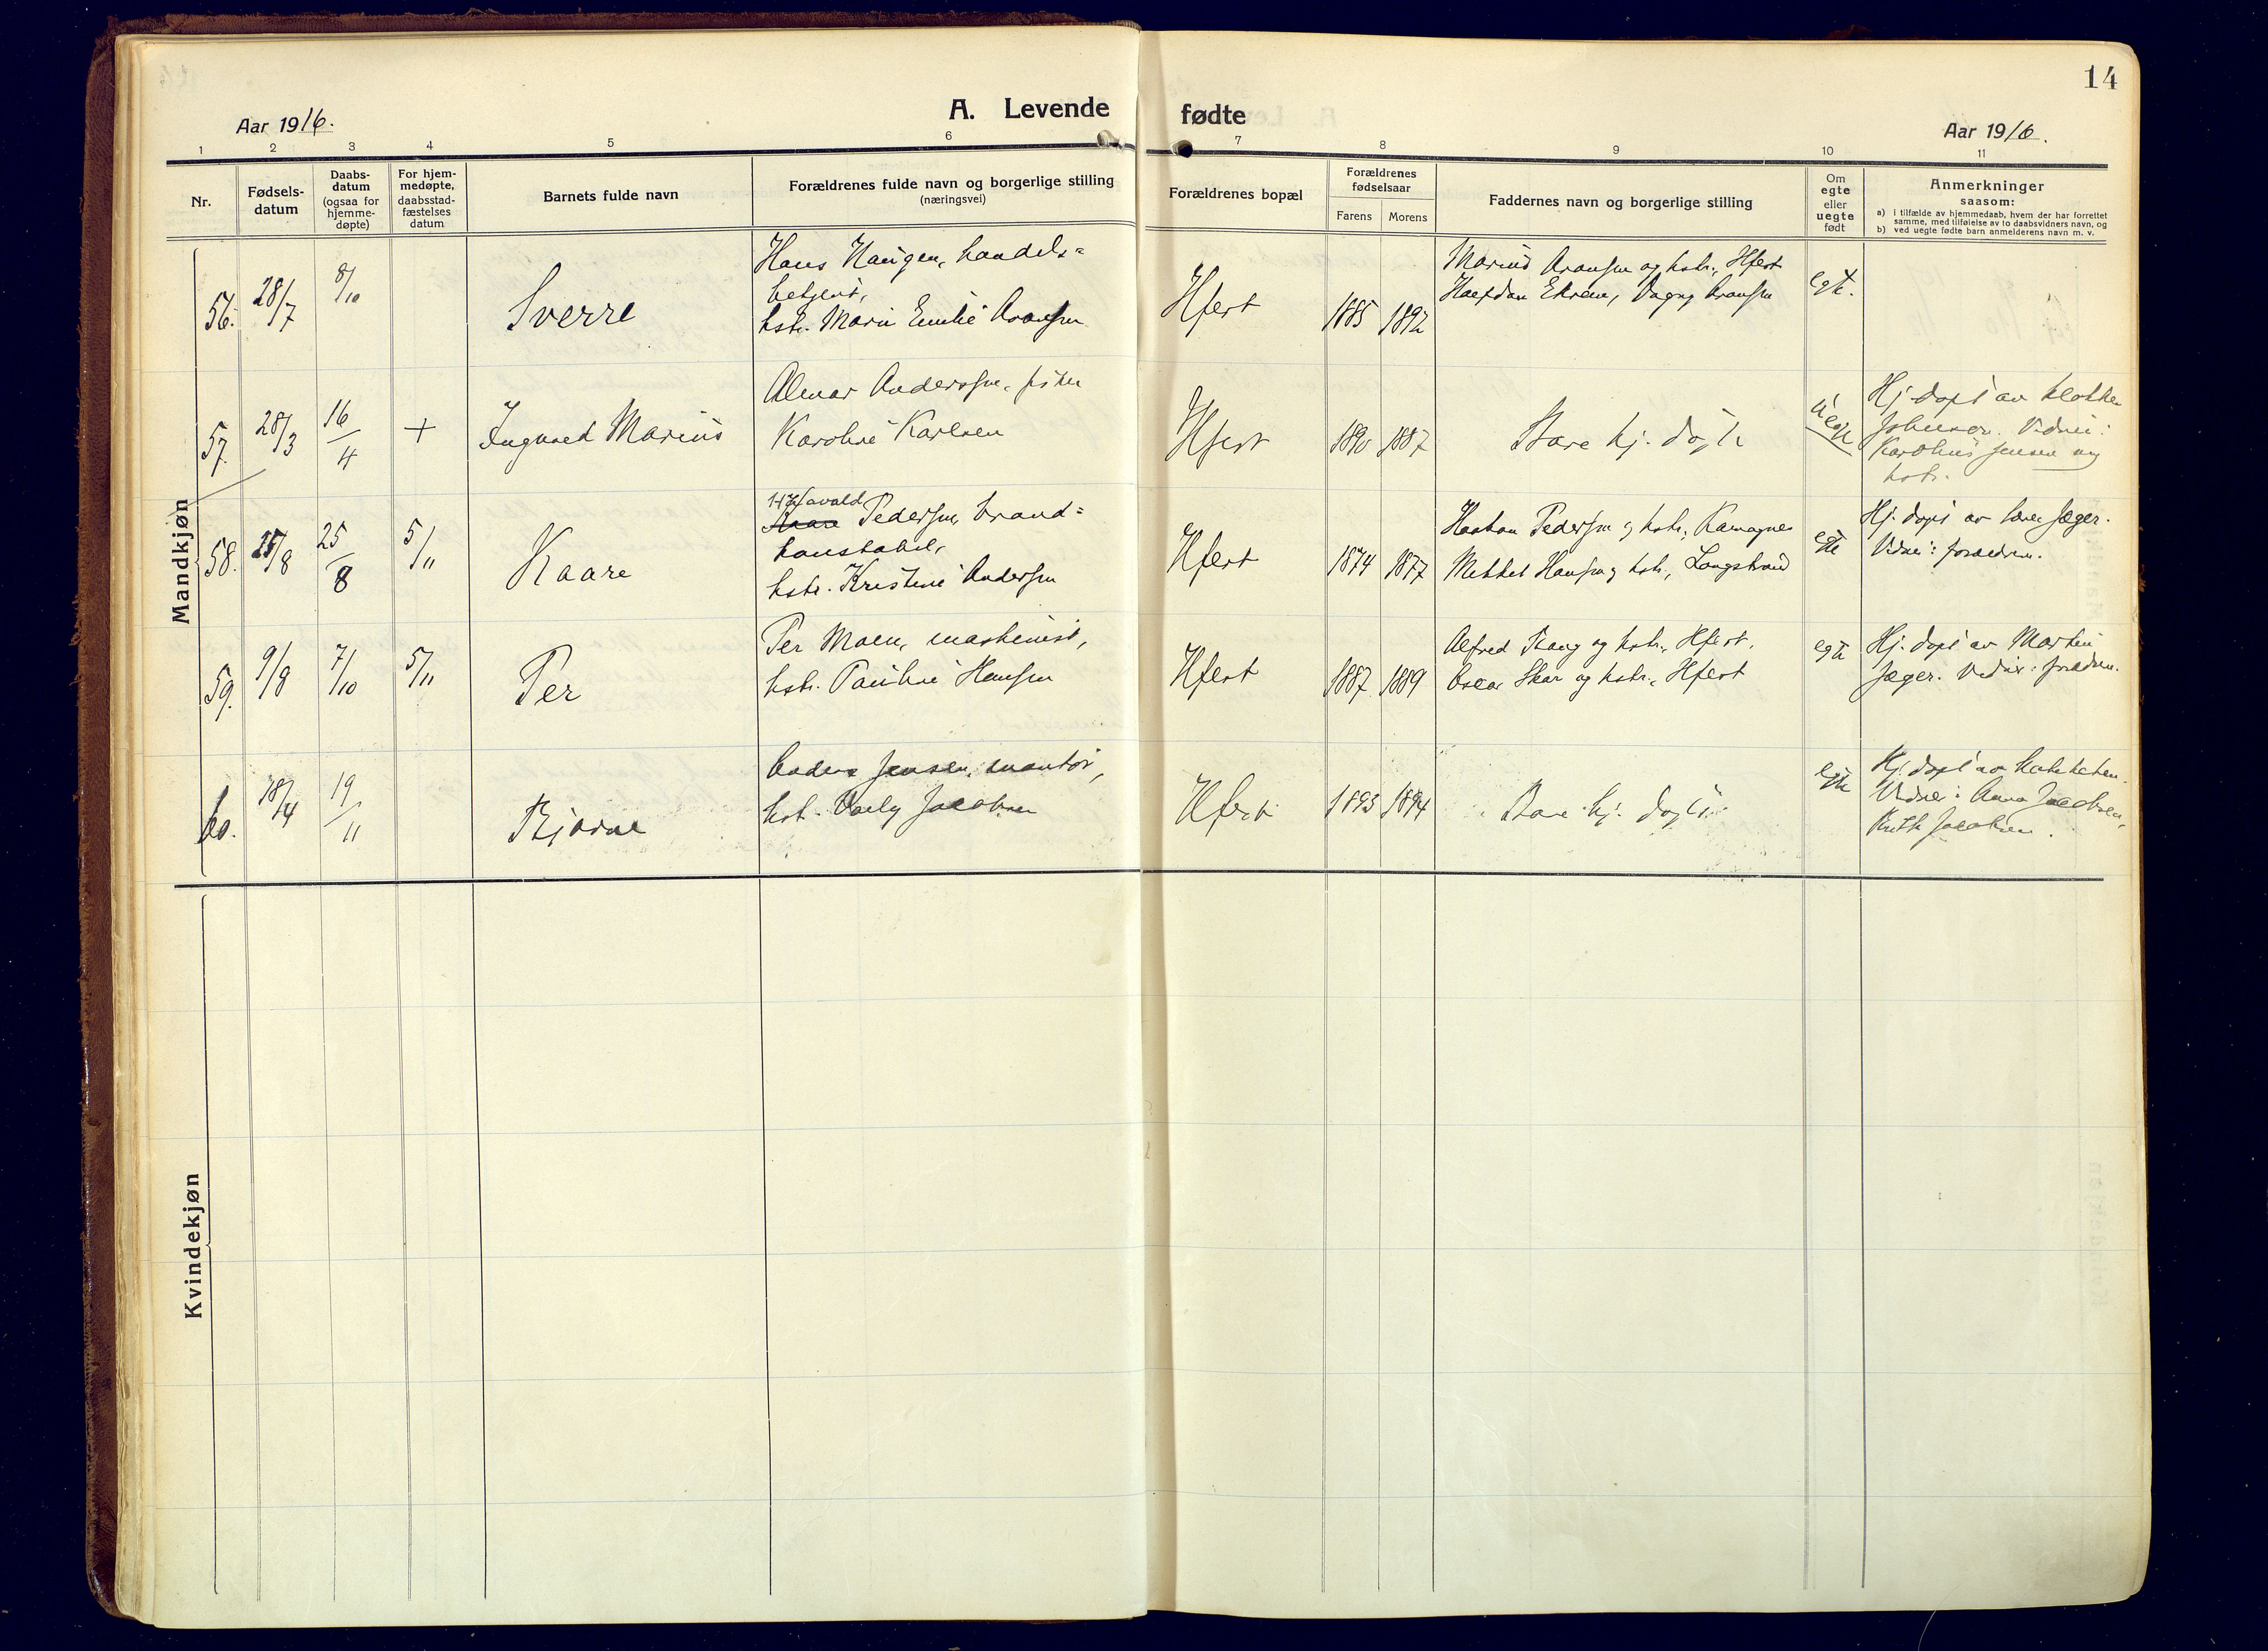 14
A. Levende fødte
Aar 1916.
Aar 1916.
1 2 3 4 5 6 7 8 9 10 11
Nr.
Fødsels-
datum
Daabs-
datum
(ogsaa for
hjemme-
døpte)
For hjem-
medøpte,
daabsstad-
fæstelses
datum
Barnets fulde navn
Forældrenes fulde navn og borgerlige stilling
(næringsvei)
Forældrenes bopæl
Forældrenes
fødselsaar
Farens Morens
Faddernes navn og borgerlige stilling
Om
egte
eller
uegte
født
Anmerkninger
saasom:
a) i tilfælde av hjemmedaab, hvem der har forrettet
samme, med tilføielse av to daabsvidners navn, og
b) ved uegte fødte barn anmelderens navn m. v.
Mandkjøn
56. 28/7 8/10
Sverre
Hans Haugen, handels=
betjent,
hstr. Marie Emilie Aronsen
Hfest 1885 1892
Marius Aronsen og hstr., Hfest
Halfdan Ekrem, Dagny Aronsen
egte.
57. 28/3 16/4 +
Ingvald Marius
Almar Anderssen, fisker
Karoline Karlsen
Hfest 1890 1887
Bare hj. døpt
uegte
Hj. døpt av klokker
Johnsen. Vidner:
Karolius Jensen og
hstr.
58. 25/8 25/8 5/11
Kaare
Havald Pedersen, brand=
konstabel,
hstr. Kristine Andersen
Hfest 1874 1877
Haakon Pedersen og hstr., Kamagnes
Mikkel Hansen og hstr., Langstrand
egte
Hj. døpt av lærer Jæger.
Vidner: forældrene.
59. 9/8 7/10 5/11
Per
Per Moen, maskinist,
hstr. Pauline Hansen
Hfest 1887 1889
Alfred Stang og hstr., Hfest.
Oscar Skar og hstr., Hfest
egte
Hj. døpt av Martin
Jæger. Vidner: forældrene.
60. 18/4 19/11
Bjarne
Anders Jensen, montør,
hst. Valy Jacobsen
Hfest 1893 1894
Bare hj. døpt.
egte
Hj. døpt av kateketen.
Vidner: Anna Jacobsen,
Ruth Jacobsen.
Kvindekjøn